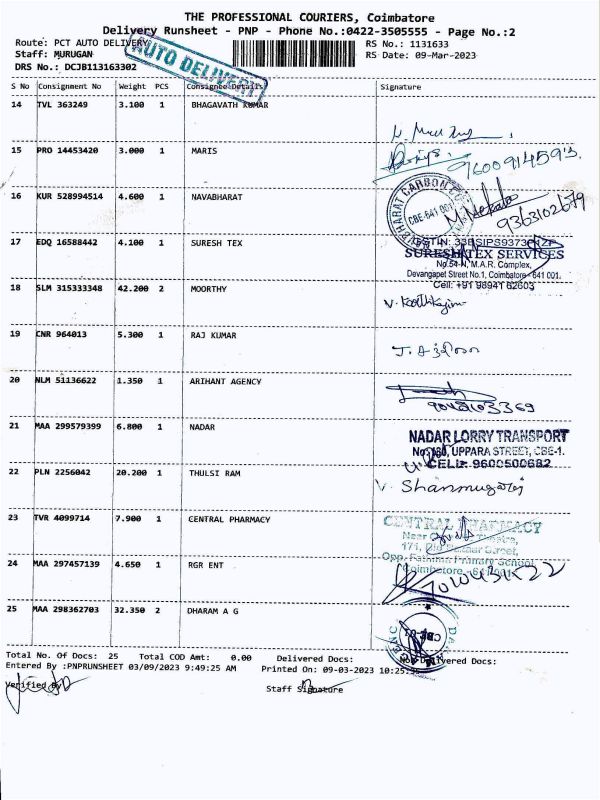 THE PROFESSIONAL COURIERS, Coimbatore
Delivery Runsheet - PNP - Phone No.:0422-3505555 - Page No.:2
Route: PCT AUTO DELIVERY
RS No.: 1131633
Staff: MURUGAN
RS Date: 09-Mar-2023
DRS No.: DCJB113163302
AUTO DELIVERY
S No Consignment No Weight PCS Consignee Details Signature
14 TVL 363249 3.100 1 BHAGAVATH KUMAR
15 PRO 14453420 3.000 1 MARIS
9600914593
16 KUR 528994514 4.600 1 NAVABHARAT
NAVBHARAT CARBON
CBE-641 001
9363102679
17 EDQ 16588442 4.100 1 SURESH TEX
SURESH TEX SERVICES
No.54-N, M.A.R. Complex,
Devangapet Street No.1, Coimbatore - 641 001.
Cell: +91 98941 62603
18 SLM 315333348 42.200 2 MOORTHY
19 CNR 964013 5.300 1 RAJ KUMAR
20 NLM 51136622 1.350 1 ARIHANT AGENCY
21 MAA 299579399 6.800 1 NADAR
NADAR LORRY TRANSPORT
UPPARA STREET, CBE-1.
CELL: 9600500682
22 PLN 2256042 20.200 1 THULSI RAM
V. Shanmugaraj
23 TVR 4099714 7.900 1 CENTRAL PHARMACY
CENTRAL PHARMACY
Opp. Fathima Primary School
Coimbatore - 641 001
24 MAA 297457139 4.650 1 RGR ENT
25 MAA 298362703 32.350 2 DHARAM A G
Total No. Of Docs: 25 Total COD Amt: 0.00 Delivered Docs: Not Delivered Docs:
Entered By :PNPRUNSHEET 03/09/2023 9:49:25 AM Printed On: 09-03-2023 10:25:
Verified By
Staff Signature